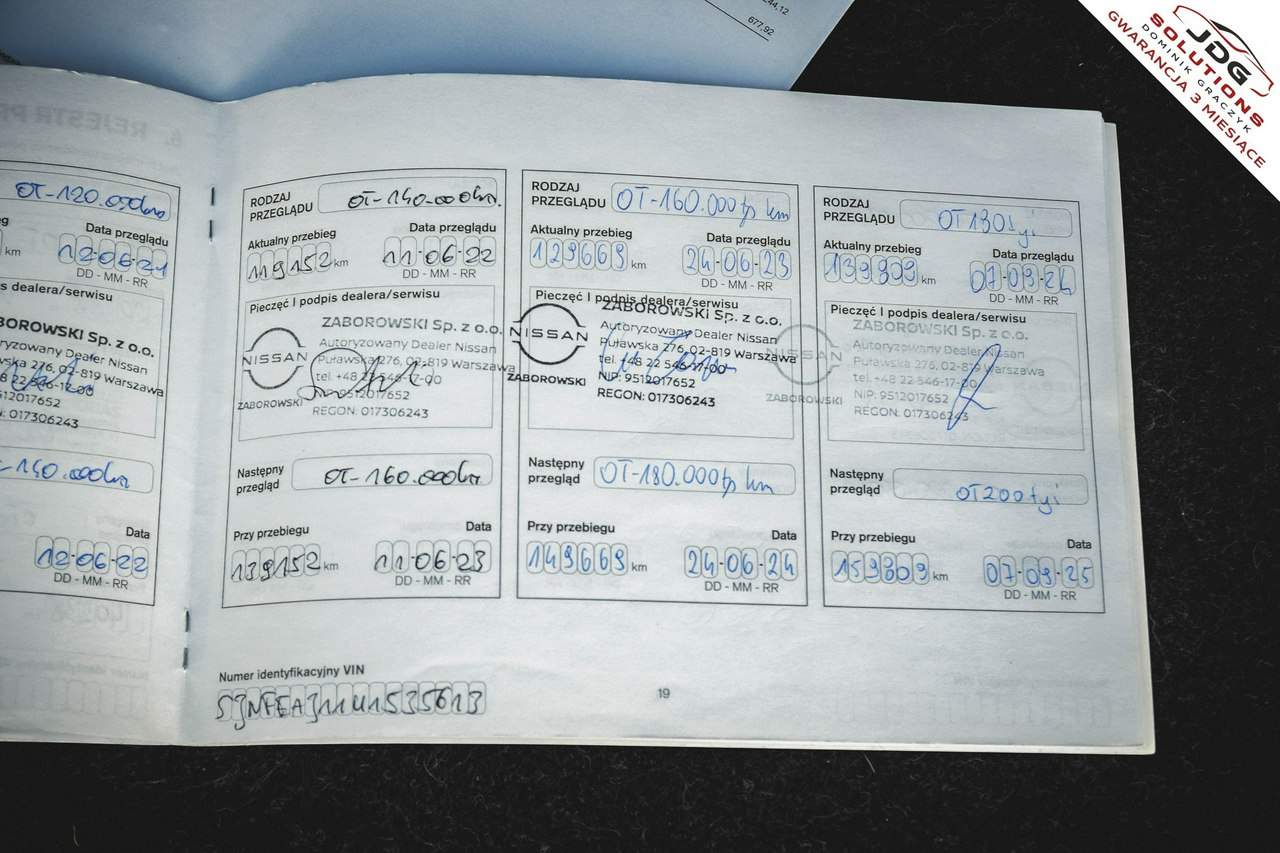 244,12
677,92
JDG
SOLUTIONS
DOMINIK GRACZYK
GWARANCJA 3 MIESIĄCE
OT-120.000km
Data przeglądu
km 12-06-21
DD - MM - RR
s dealera/serwisu
BOROWSKI Sp. z o.o.
yzowany Dealer Nissan
wska 276, 02-819 Warszawa
8 22 546-17-00
512017652
N: 017306243
-140.000km
Data
12-06-22
DD - MM - RR
RODZAJ
PRZEGLĄDU
OT-140.000km.
Aktualny przebieg Data przeglądu
119152 km 11-06-22
DD - MM - RR
Pieczęć I podpis dealera/serwisu
NISSAN
ZABOROWSKI
ZABOROWSKI Sp. z o.o.
Autoryzowany Dealer Nissan
Puławska 276, 02-819 Warszawa
tel. +48 22 546-17-00
NIP: 9512017652
REGON: 017306243
Następny
przegląd
OT-160.000km
Przy przebiegu Data
139152 km 11-06-23
DD - MM - RR
RODZAJ
PRZEGLĄDU
OT-160.000 km
Aktualny przebieg Data przeglądu
129669 km 24-06-23
DD - MM - RR
Pieczęć I podpis dealera/serwisu
NISSAN
ZABOROWSKI
ZABOROWSKI Sp. z o.o.
Autoryzowany Dealer Nissan
Puławska 276, 02-819 Warszawa
tel. +48 22 546-17-00
NIP: 9512017652
REGON: 017306243
Następny
przegląd
OT-180.000 km
Przy przebiegu Data
149669 km 24-06-24
DD - MM - RR
RODZAJ
PRZEGLĄDU
Aktualny przebieg Data przeglądu
139809 km 07-09-24
DD - MM - RR
Pieczęć I podpis dealera/serwisu
NISSAN
ZABOROWSKI
ZABOROWSKI Sp. z o.o.
Autoryzowany Dealer Nissan
Puławska 276, 02-819 Warszawa
tel. +48 22 546-17-00
NIP: 9512017652
REGON: 017306243
Następny
przegląd
OT200tyś
Przy przebiegu Data
159809 km 07-09-25
DD - MM - RR
Numer identyfikacyjny VIN
SJNFEAJ11U1535613
19